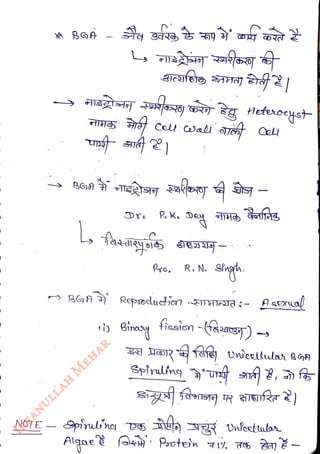 * BGA - जैव उर्वरक के रूप में कार्य करते है
↳ नाइट्रोजन स्थरीकरण की
अत्याधिक क्षमता होती है।
→ नाइट्रोजन स्थरीकरण करने हेतु Heterocyst
नामक मोटी Cell Wall वाली Cell
पायी जाती है।
→ BGA में नाइट्रोजन स्थरीकरण की खोज -
Dr. P.K. Dey नामक वैज्ञानिक
↳ विस्तारपूर्वक अध्ययन -
Pro. R.N. Singh.
→ BGA में Reproduction सामान्यत:- Asexual
(i) Binary fission - (विखण्डन) →
इस प्रकार की विधि Unicellular BGA
Spirulina में पायी जाती है, जो कि
असूत्री विभाजन पर आधारित है।
NOTE - Spirulina एक प्रोटीन प्रचुर Unicellular
Algae है जिसमें Protein 71% तक होता है -
AMANULLAH MEHAR